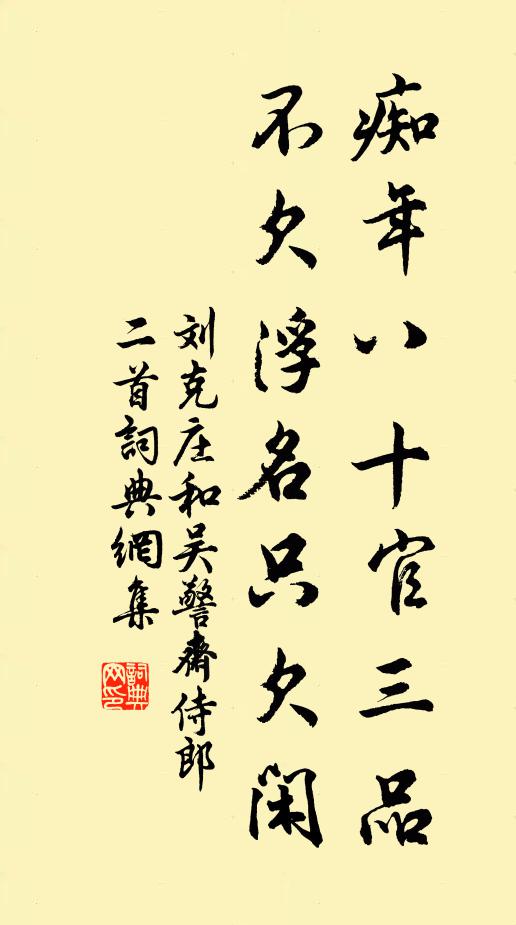 痴年八十官三品
不欠浮名只欠閑
刘克庄和吴警齋侍郎
二首詞典網集
詞典網印